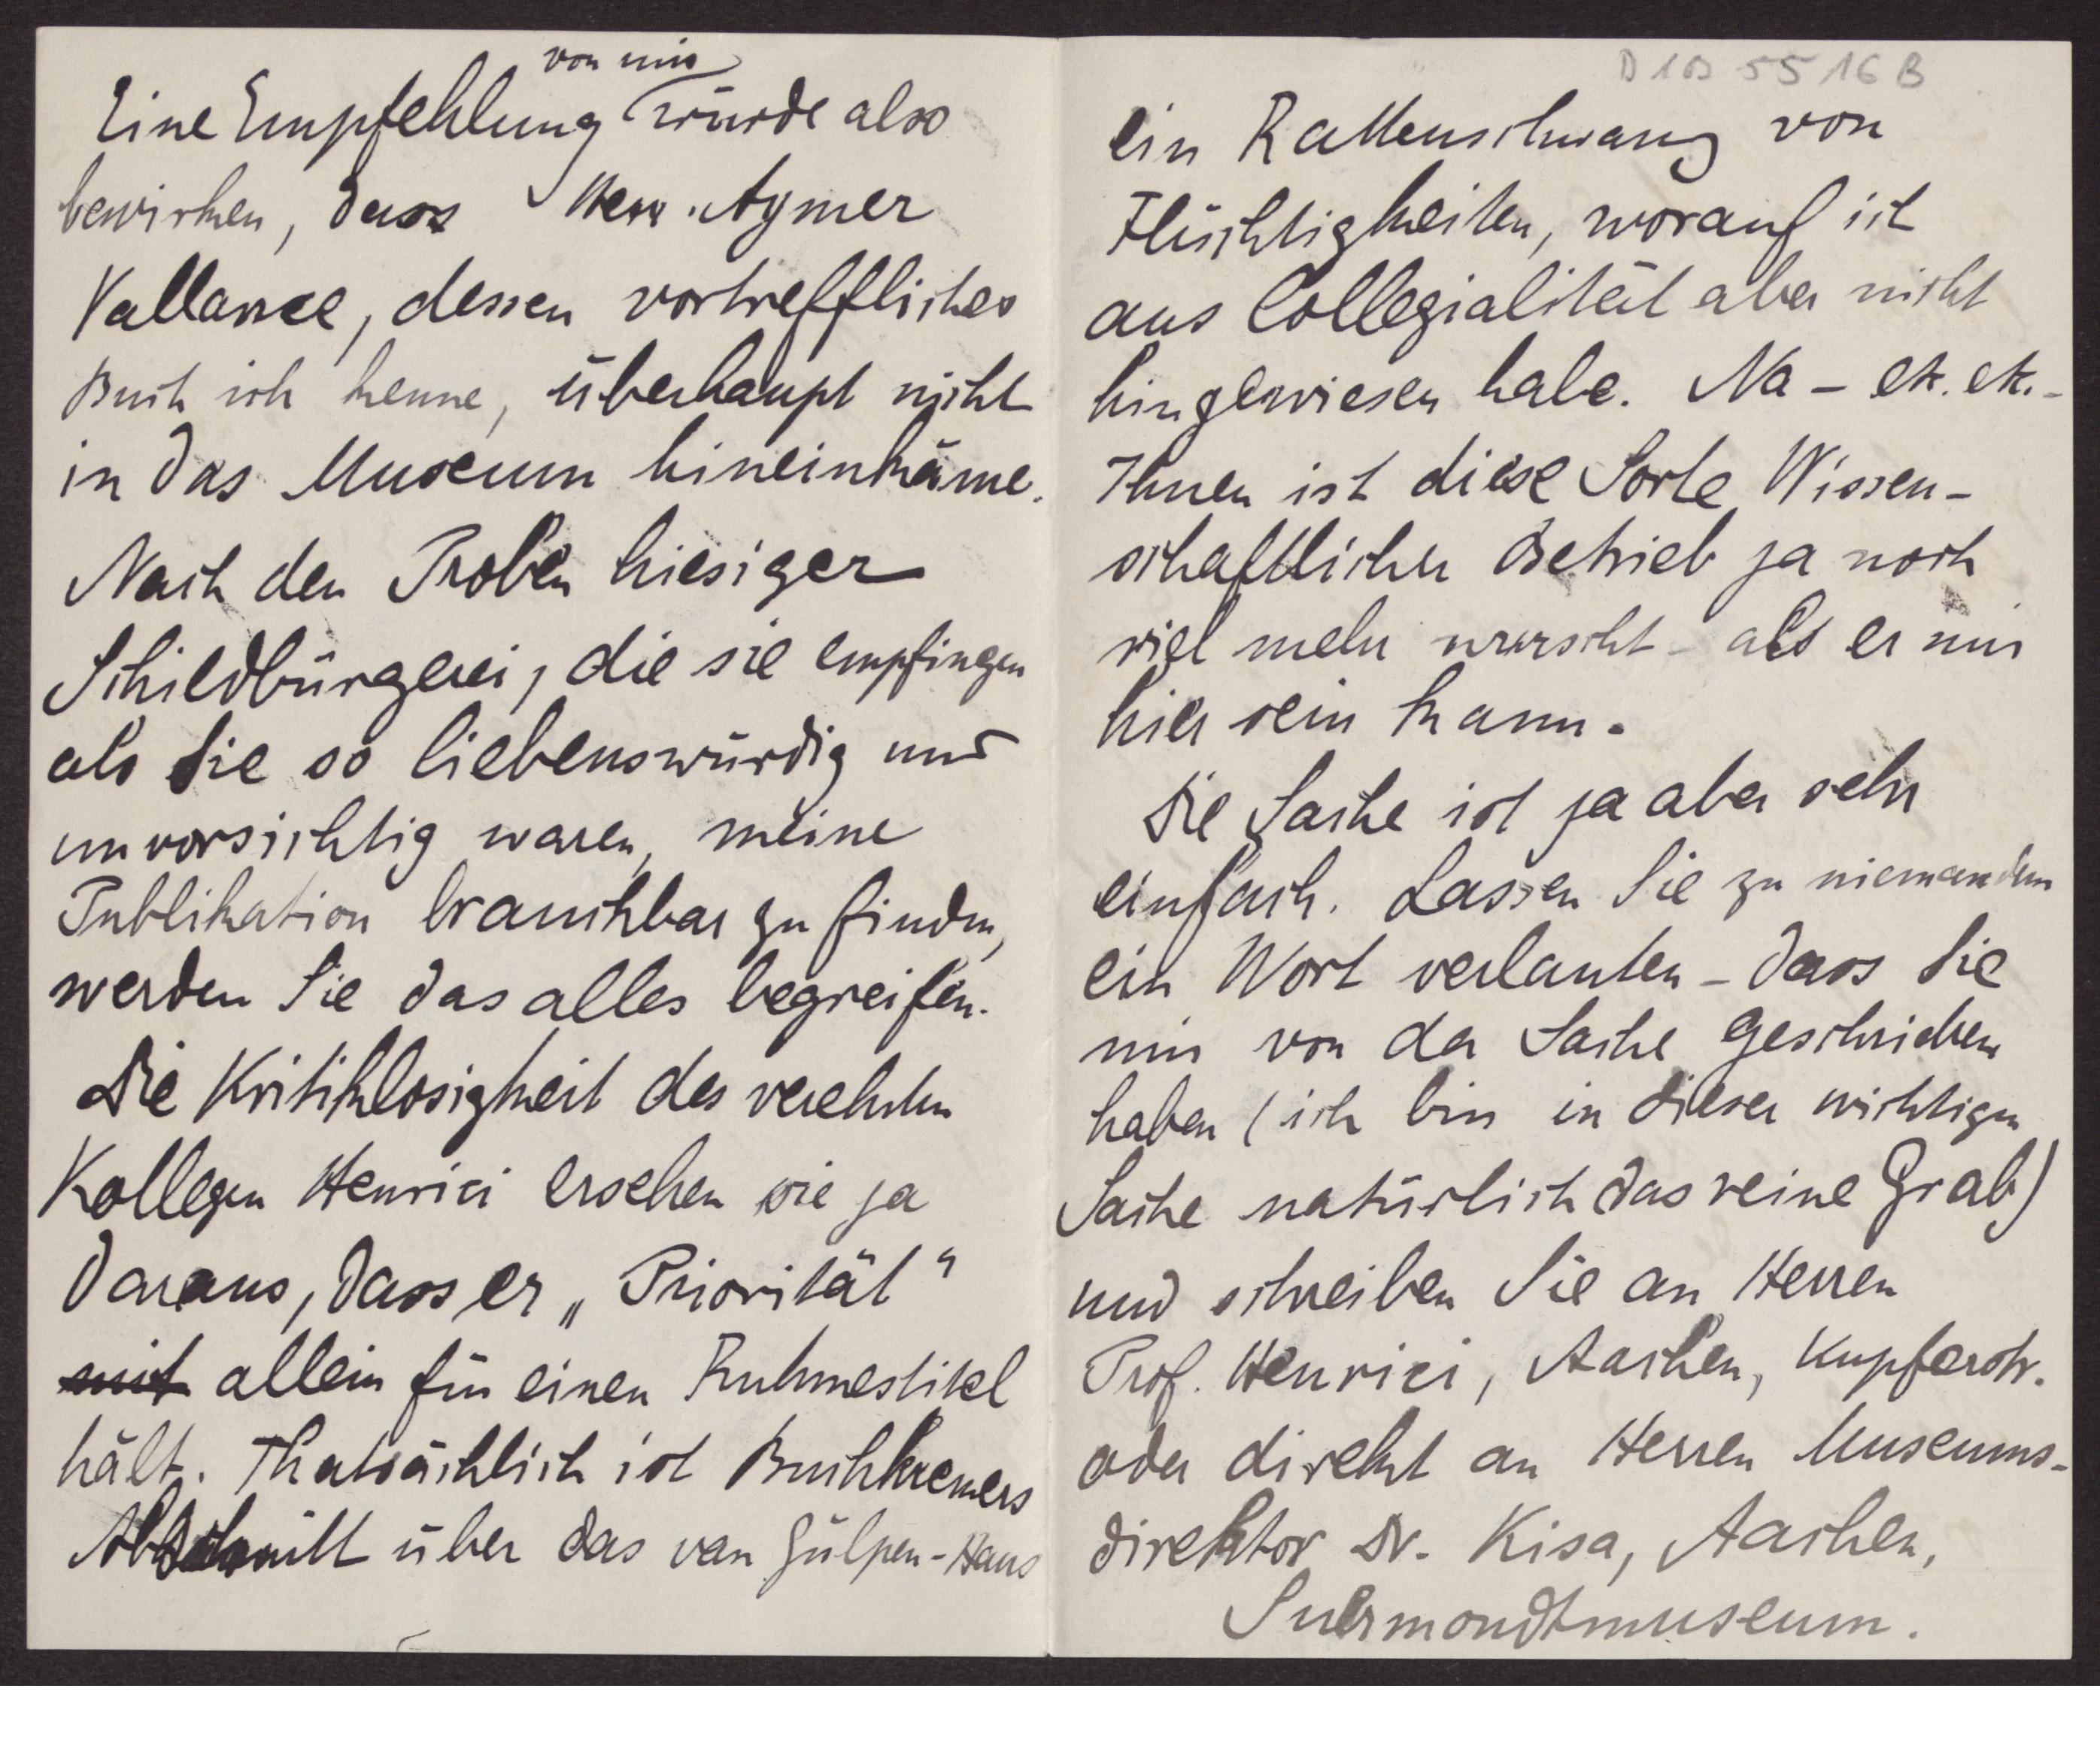 von mir
Eine Empfehlung würde also
bewirken, dass Herr Aymer
Vallance, dessen vortreffliches
Buch ich kenne, überhaupt nicht
in das Museum hineinkäme.
Nach den Proben hiesiger
Schildbürgerei, die sie empfingen
als Sie so liebenswürdig und
unvorsichtig waren, meine
Publikation brauchbar zu finden,
werden Sie das alles begreifen.
Die Kritiklosigkeit des verehrten
Kollegen Henrici ersehen sie ja
daraus, dass er „Priorität“
mit allein für einen Ruhmestitel
hält. Thatsächlich ist Buchkremers
Abschnitt über das van Gülpen-Haus
D 10 5516 B
ein Rattenschwanz von
Flüchtigkeiten, worauf ich
aus Collegialität aber nicht
hingewiesen habe. Na - etc. etc. -
Ihnen ist diese Sorte Wissen-
schaftlicher Betrieb ja noch
viel mehr wurscht - als er mir
hier sein kann.
Die Sache ist ja aber sehr
einfach. Lassen Sie zu niemandem
ein Wort verlauten - dass Sie
mir von der Sache geschrieben
haben (ich bin in dieser wichtigen
Sache natürlich das reine Grab)
und schreiben Sie an Herren
Prof. Henrici, Aachen, Kupferstr.
oder direkt an Herren Museums-
direktor Dr. Kisa, Aachen,
Suermondtmuseum.